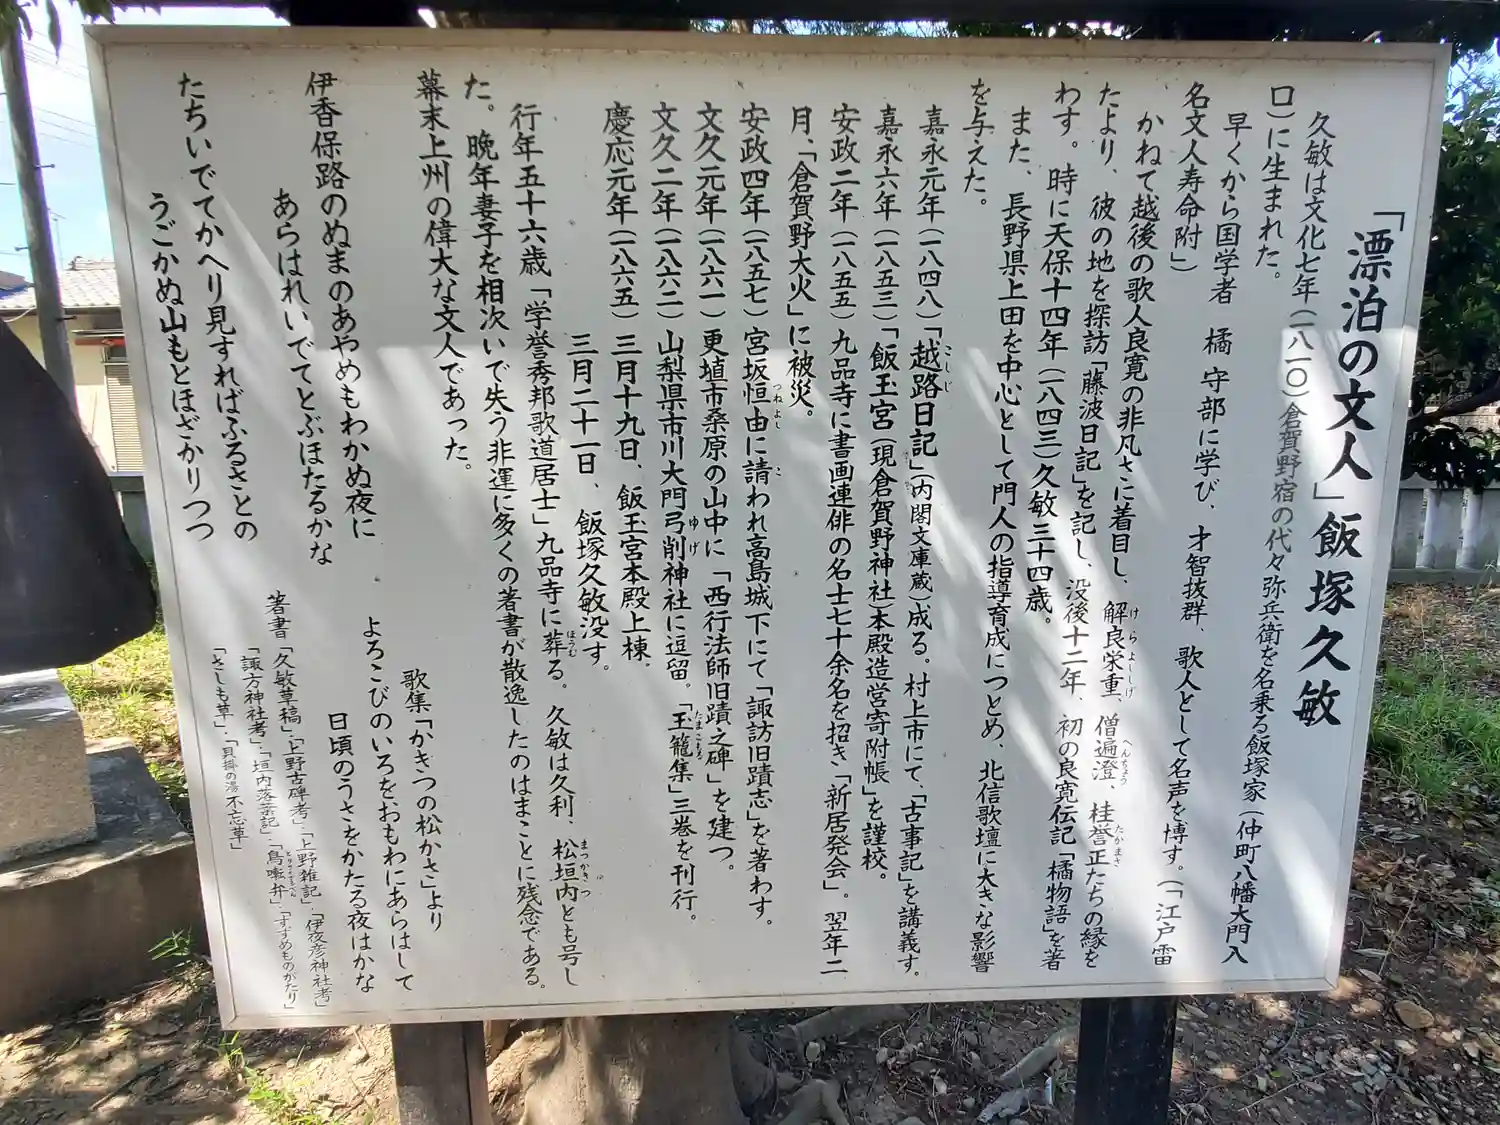 「漂泊の文人」飯塚久敏
久敏は文化七年（一八一〇）倉賀野宿の代々弥兵衛を名乗る飯塚家（仲町八幡大門入
口）に生まれた。
早くから国学者　橘　守部に学び、才智抜群、歌人として名声を博す。（「江戸雷
名文人寿命附」）
かねて越後の歌人良寛の非凡さに着目し、解良栄重、僧遍澄、桂誉正たちの縁を
たより、彼の地を探訪「藤波日記」を記し、没後十二年、初の良寛伝記「橘物語」を著
わす。時に天保十四年（一八四三）久敏三十四歳。
また、長野県上田を中心として門人の指導育成につとめ、北信歌壇に大きな影響
を与えた。
嘉永元年（一八四八）「越路日記」（内閣文庫蔵）成る。村上市にて、「古事記」を講義す。
嘉永六年（一八五三）「飯玉宮（現倉賀野神社）本殿造営寄附帳」を謹校。
安政二年（一八五五）九品寺に書画連俳の名士七十余名を招き「新居発会」。翌年二
月、「倉賀野大火」に被災。
安政四年（一八五七）宮坂恒由に請われ高島城下にて「諏訪旧蹟志」を著わす。
文久元年（一八六一）更埴市桑原の山中に「西行法師旧蹟之碑」を建つ。
文久二年（一八六二）山梨県市川大門弓削神社に逗留。「玉籠集」三巻を刊行。
慶応元年（一八六五）三月十九日、飯玉宮本殿上棟、
三月二十一日、飯塚久敏没す。
行年五十六歳「学誉秀邦歌道居士」九品寺に葬る。久敏は久利、松垣内とも号し
た。晩年妻子を相次いで失う非運に多くの著書が散逸したのはまことに残念である。
幕末上州の偉大な文人であった。
歌集「かきつの松かさ」より
よろこびのいろをおもわにあらはして
日頃のうさをかたる夜はかな
伊香保路のぬまのあやめもわかぬ夜に
あらはれいでてとぶほたるかな
たちいでてかへり見すればふるさとの
うごかぬ山もとほざかりつつ
著書「久敏草稿」、「上野古碑考」、「上野雑記」、「伊夜彦神社考」
「諏方神社考」、「垣内落葉記」、「鳥囀弁」、「すずめものがたり」
「さしも草」、「貝掛の湯不忘草」